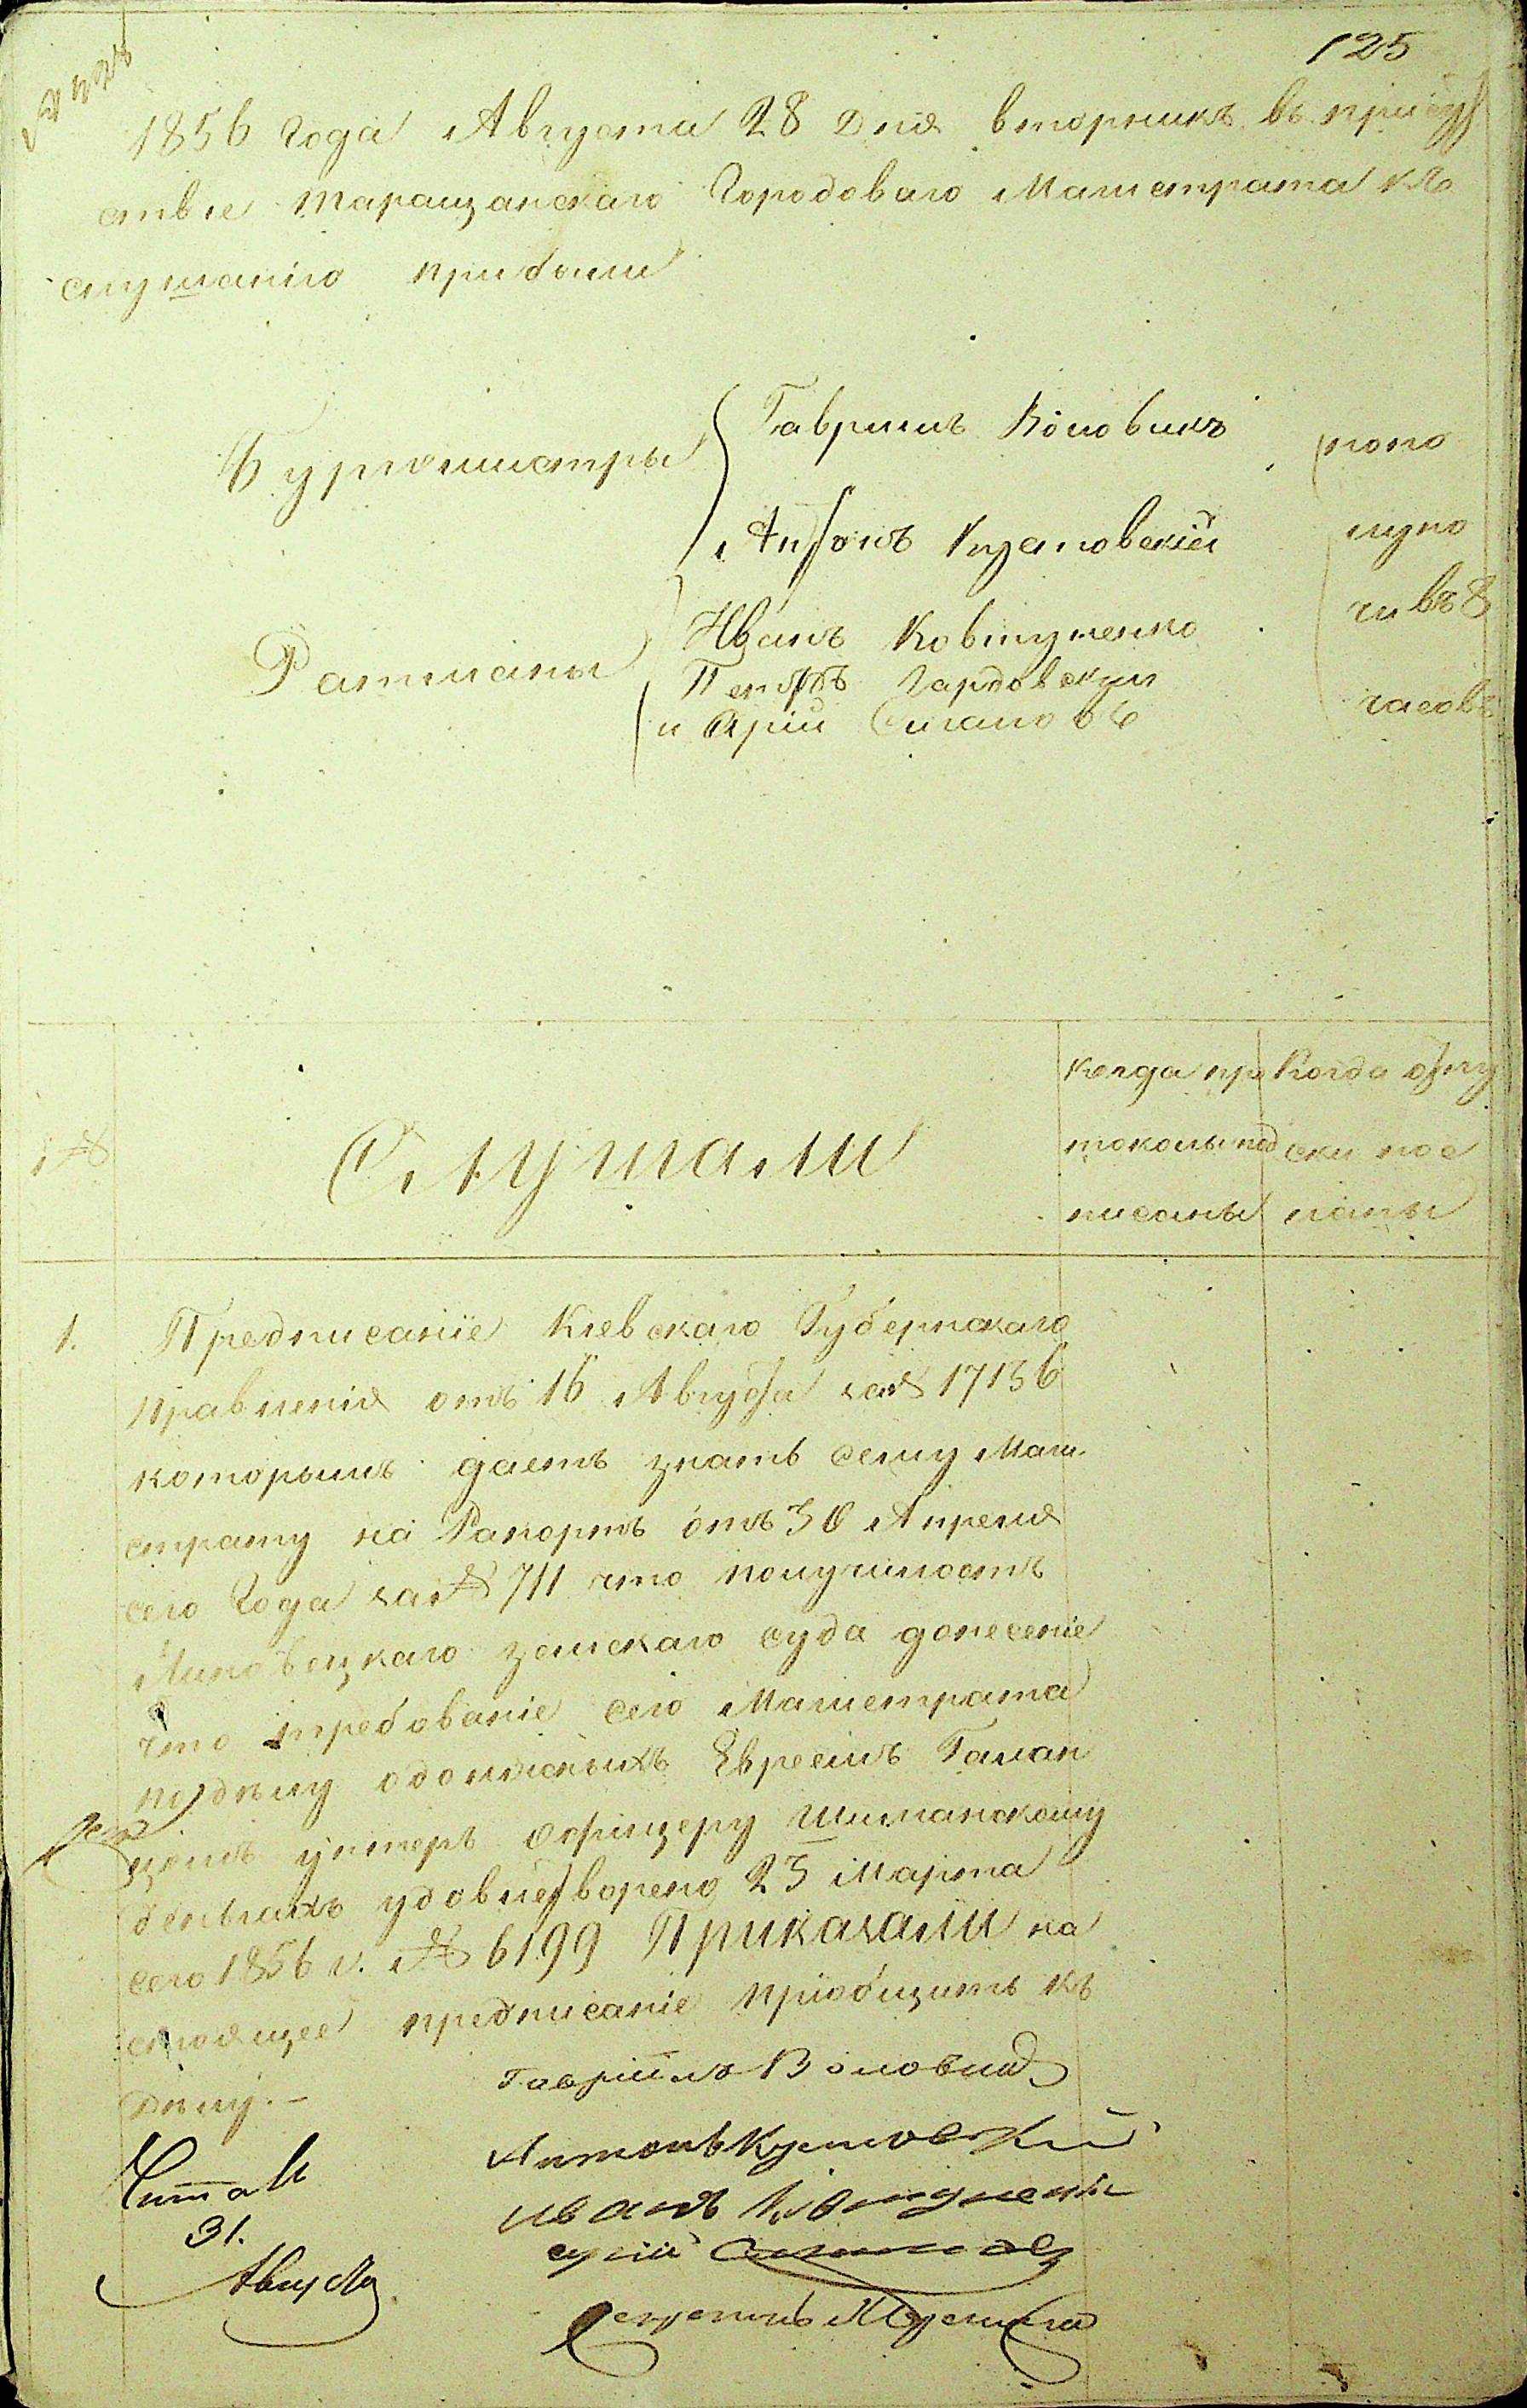 125
1856 года Августа 28 Дня вторникъ въ присут
ствіе Таращанскаго Городоваго Магистрата къ
слушанію прибыли
Бургомистры
Гавріилъ Воловикъ
Антонъ Кулановскій
Ратманы
Иванъ Ковтуненко
Петръ Гардовскій
и Юрій Сигаловъ
пополуночи въ 8 часовъ
№
Слушали
Когда протоколы подписаны
Когда отпуски посланы
1. Предписаніе Кіевскаго Губернскаго
Правленія отъ 16 Августа за № 17136
которымъ даетъ знать сему Маги
страту на Рапортъ отъ 30 Апреля
сего Года за № 711 что получилоотъ
Липовецкаго земскаго суда донесеніе
что требованіе сего Магистрата
по дѣлу одолжныхъ Евреемъ
цомъ унтеръ офицеру Шиманскому
деньгахъ удовлетворено 23 Марта
сего 1856 г. № 6199 Приказали на
стоящее предписаніе пріобщить къ
Дѣлу. –
Гавріилъ Воловик
Антонъ
Иванъ
Читалъ
31.
Августа